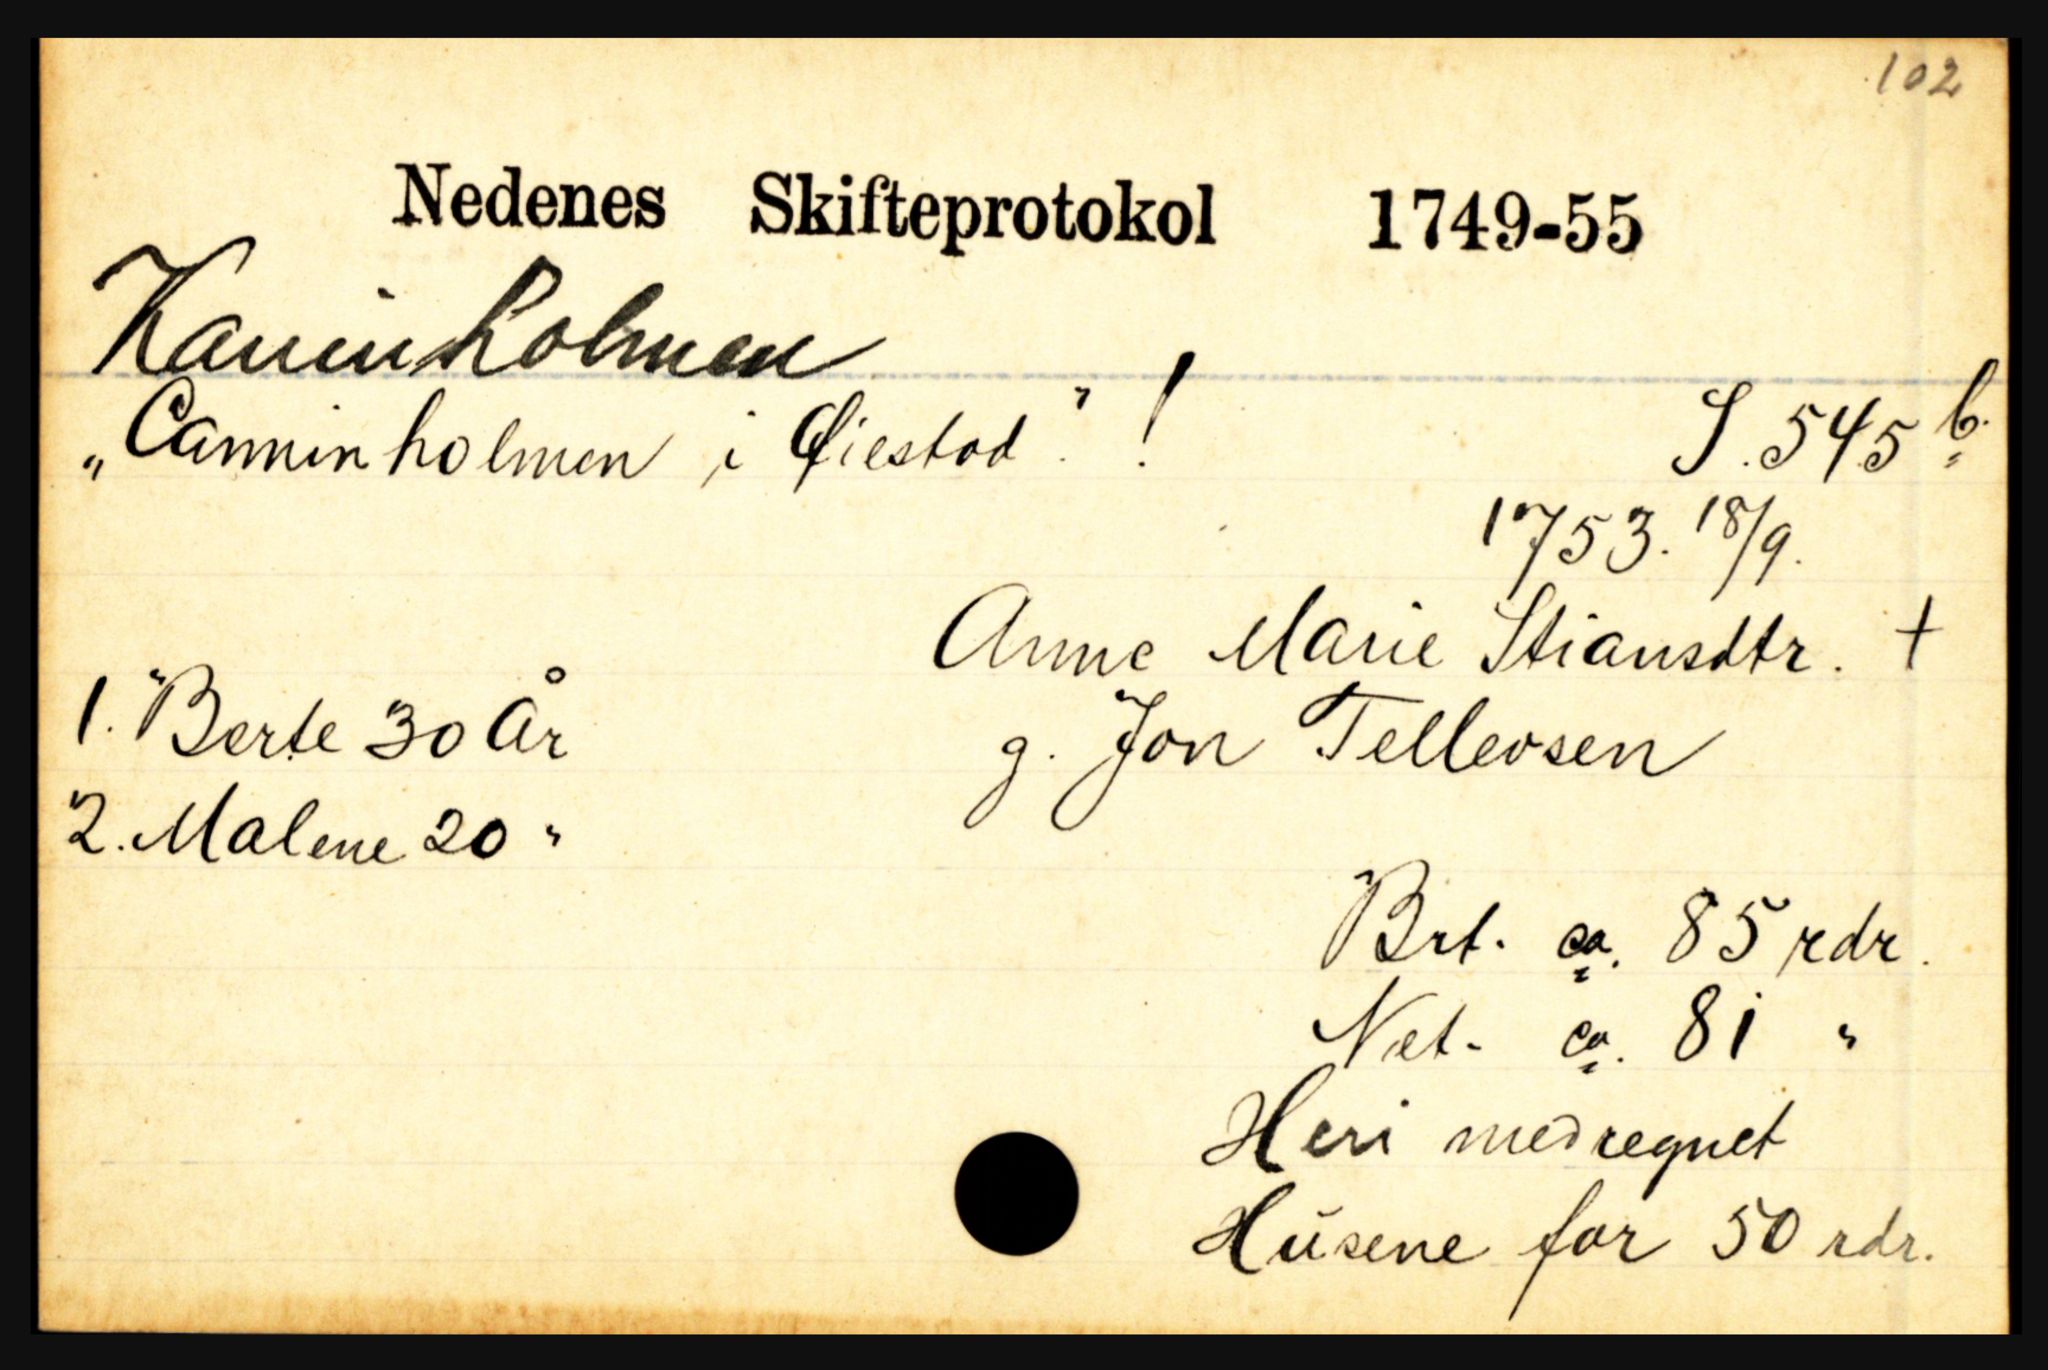 102
Nedenes Skifteprotokol 1749-55
Kaninholmen
„Canninholmen i Øiestad." !
S. 545 b.
1753. 18/9.
Anne Marie Stiansdtr. +
g. Jon Tellevsen
1. Berte 30 År
2. Malene 20 "
Brt. ca. 85 rdr.
Net. ca. 81 "
Heri medregnet
Husene for 50 rdr.